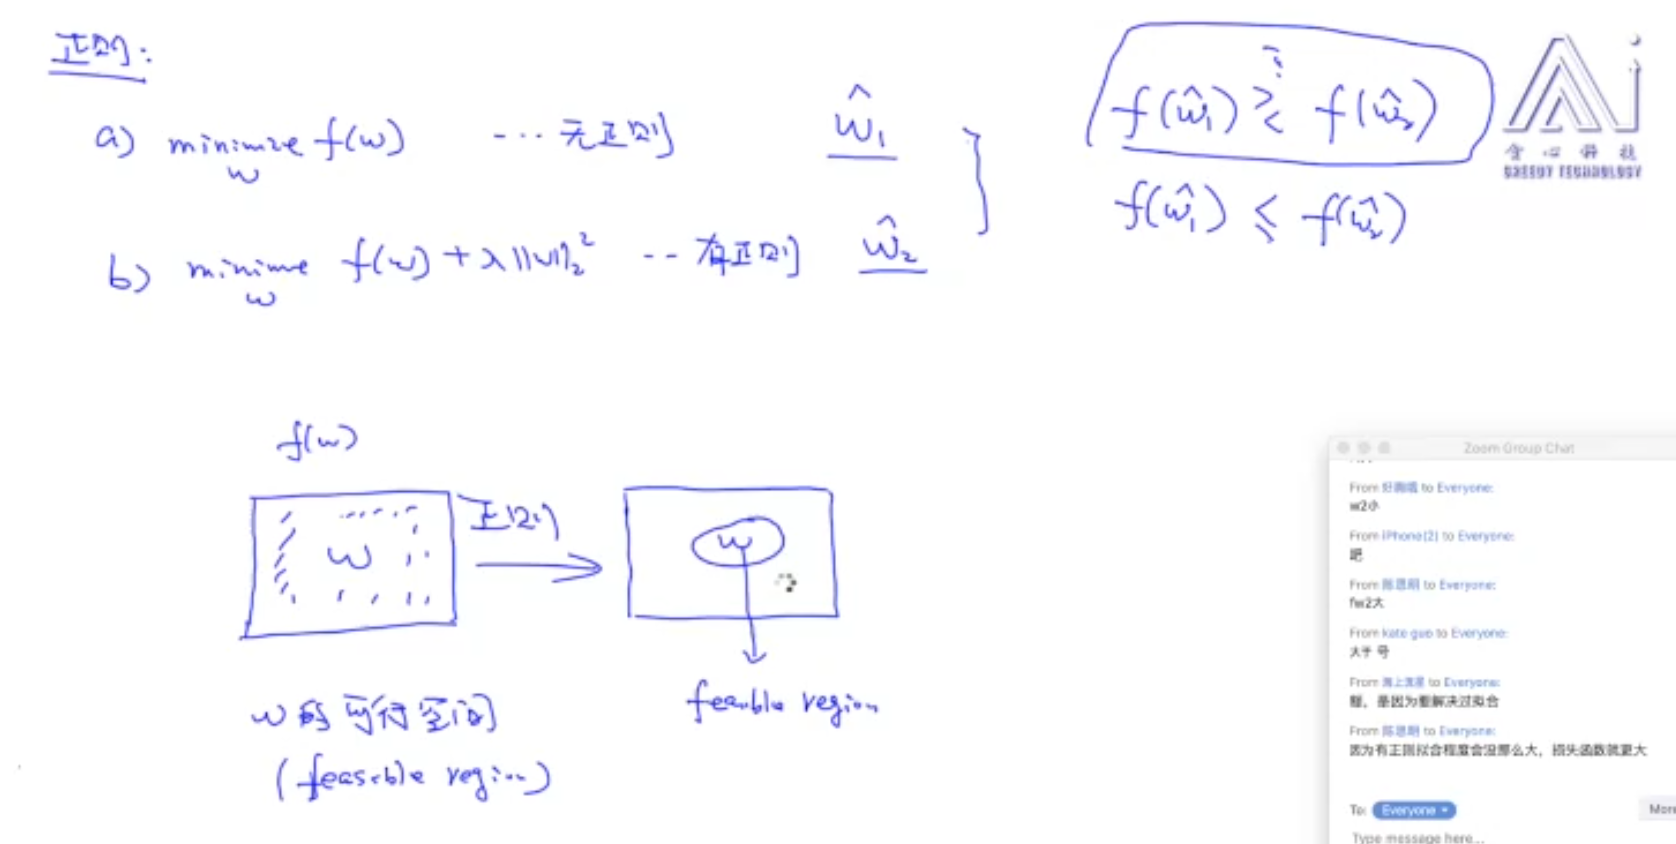 正则:
a) minimize f(w) ... 无正则 ŵ₁
w
b) minimize f(w) + λ||w||₂² -- 有正则 ŵ₂
w
?
f(ŵ₁) ≷ f(ŵ₂)
f(ŵ₁) ≤ f(ŵ₂)
贪心科技
GREEDY TECHNOLOGY
f(w)
w
正则
w
w的可行空间
(feasible region)
feasible region
Zoom Group Chat
to Everyone:
w2小
From iPhone(2) to Everyone:
吧
From 陈思明 to Everyone:
fw2大
From kate guo to Everyone:
大于 号
From 海上流星 to Everyone:
额，是因为要解决过拟合
From 陈思明 to Everyone:
因为有正则拟合程度会没那么大，损失函数就更大
To: Everyone
More
Type message here...